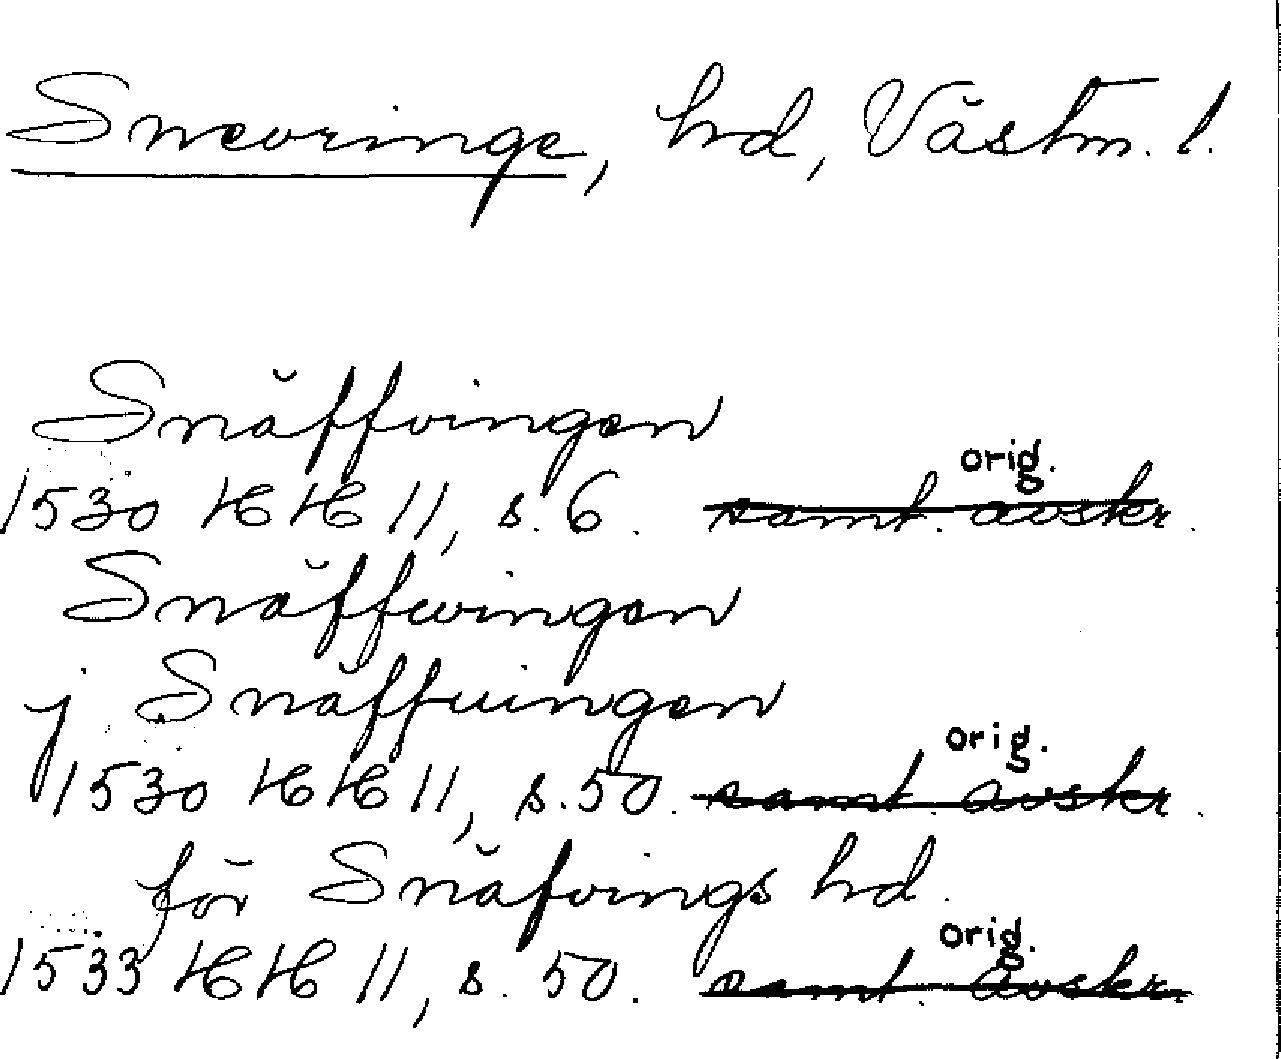 Snevringe, hd, Västm. l.
Snäffvingen
1530 HH 11, s. 6. samt. avskr. orig.
Snäffwingen
j Snäffuingen
1530 HH 11, s. 50. samt. avskr. orig.
för Snäfvings hd.
1533 HH 11, s. 50. samt. avskr. orig.